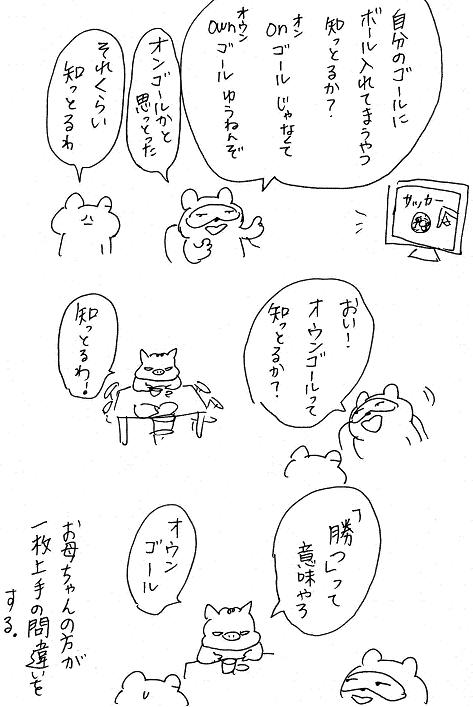 自分のゴールに
ボール入れてまうやつ
知っとるか?
オン
onゴールじゃなくて
オウン
ownゴールゆうねんぞ
オンゴールかと
思っとった
それくらい
知っとるわ
サッカー
おい!
オウンゴールって
知っとるか?
知っとるわ!
「勝つ」って
意味やろ
オウン
ゴール
お母ちゃんの方が
一枚上手の間違いを
する。